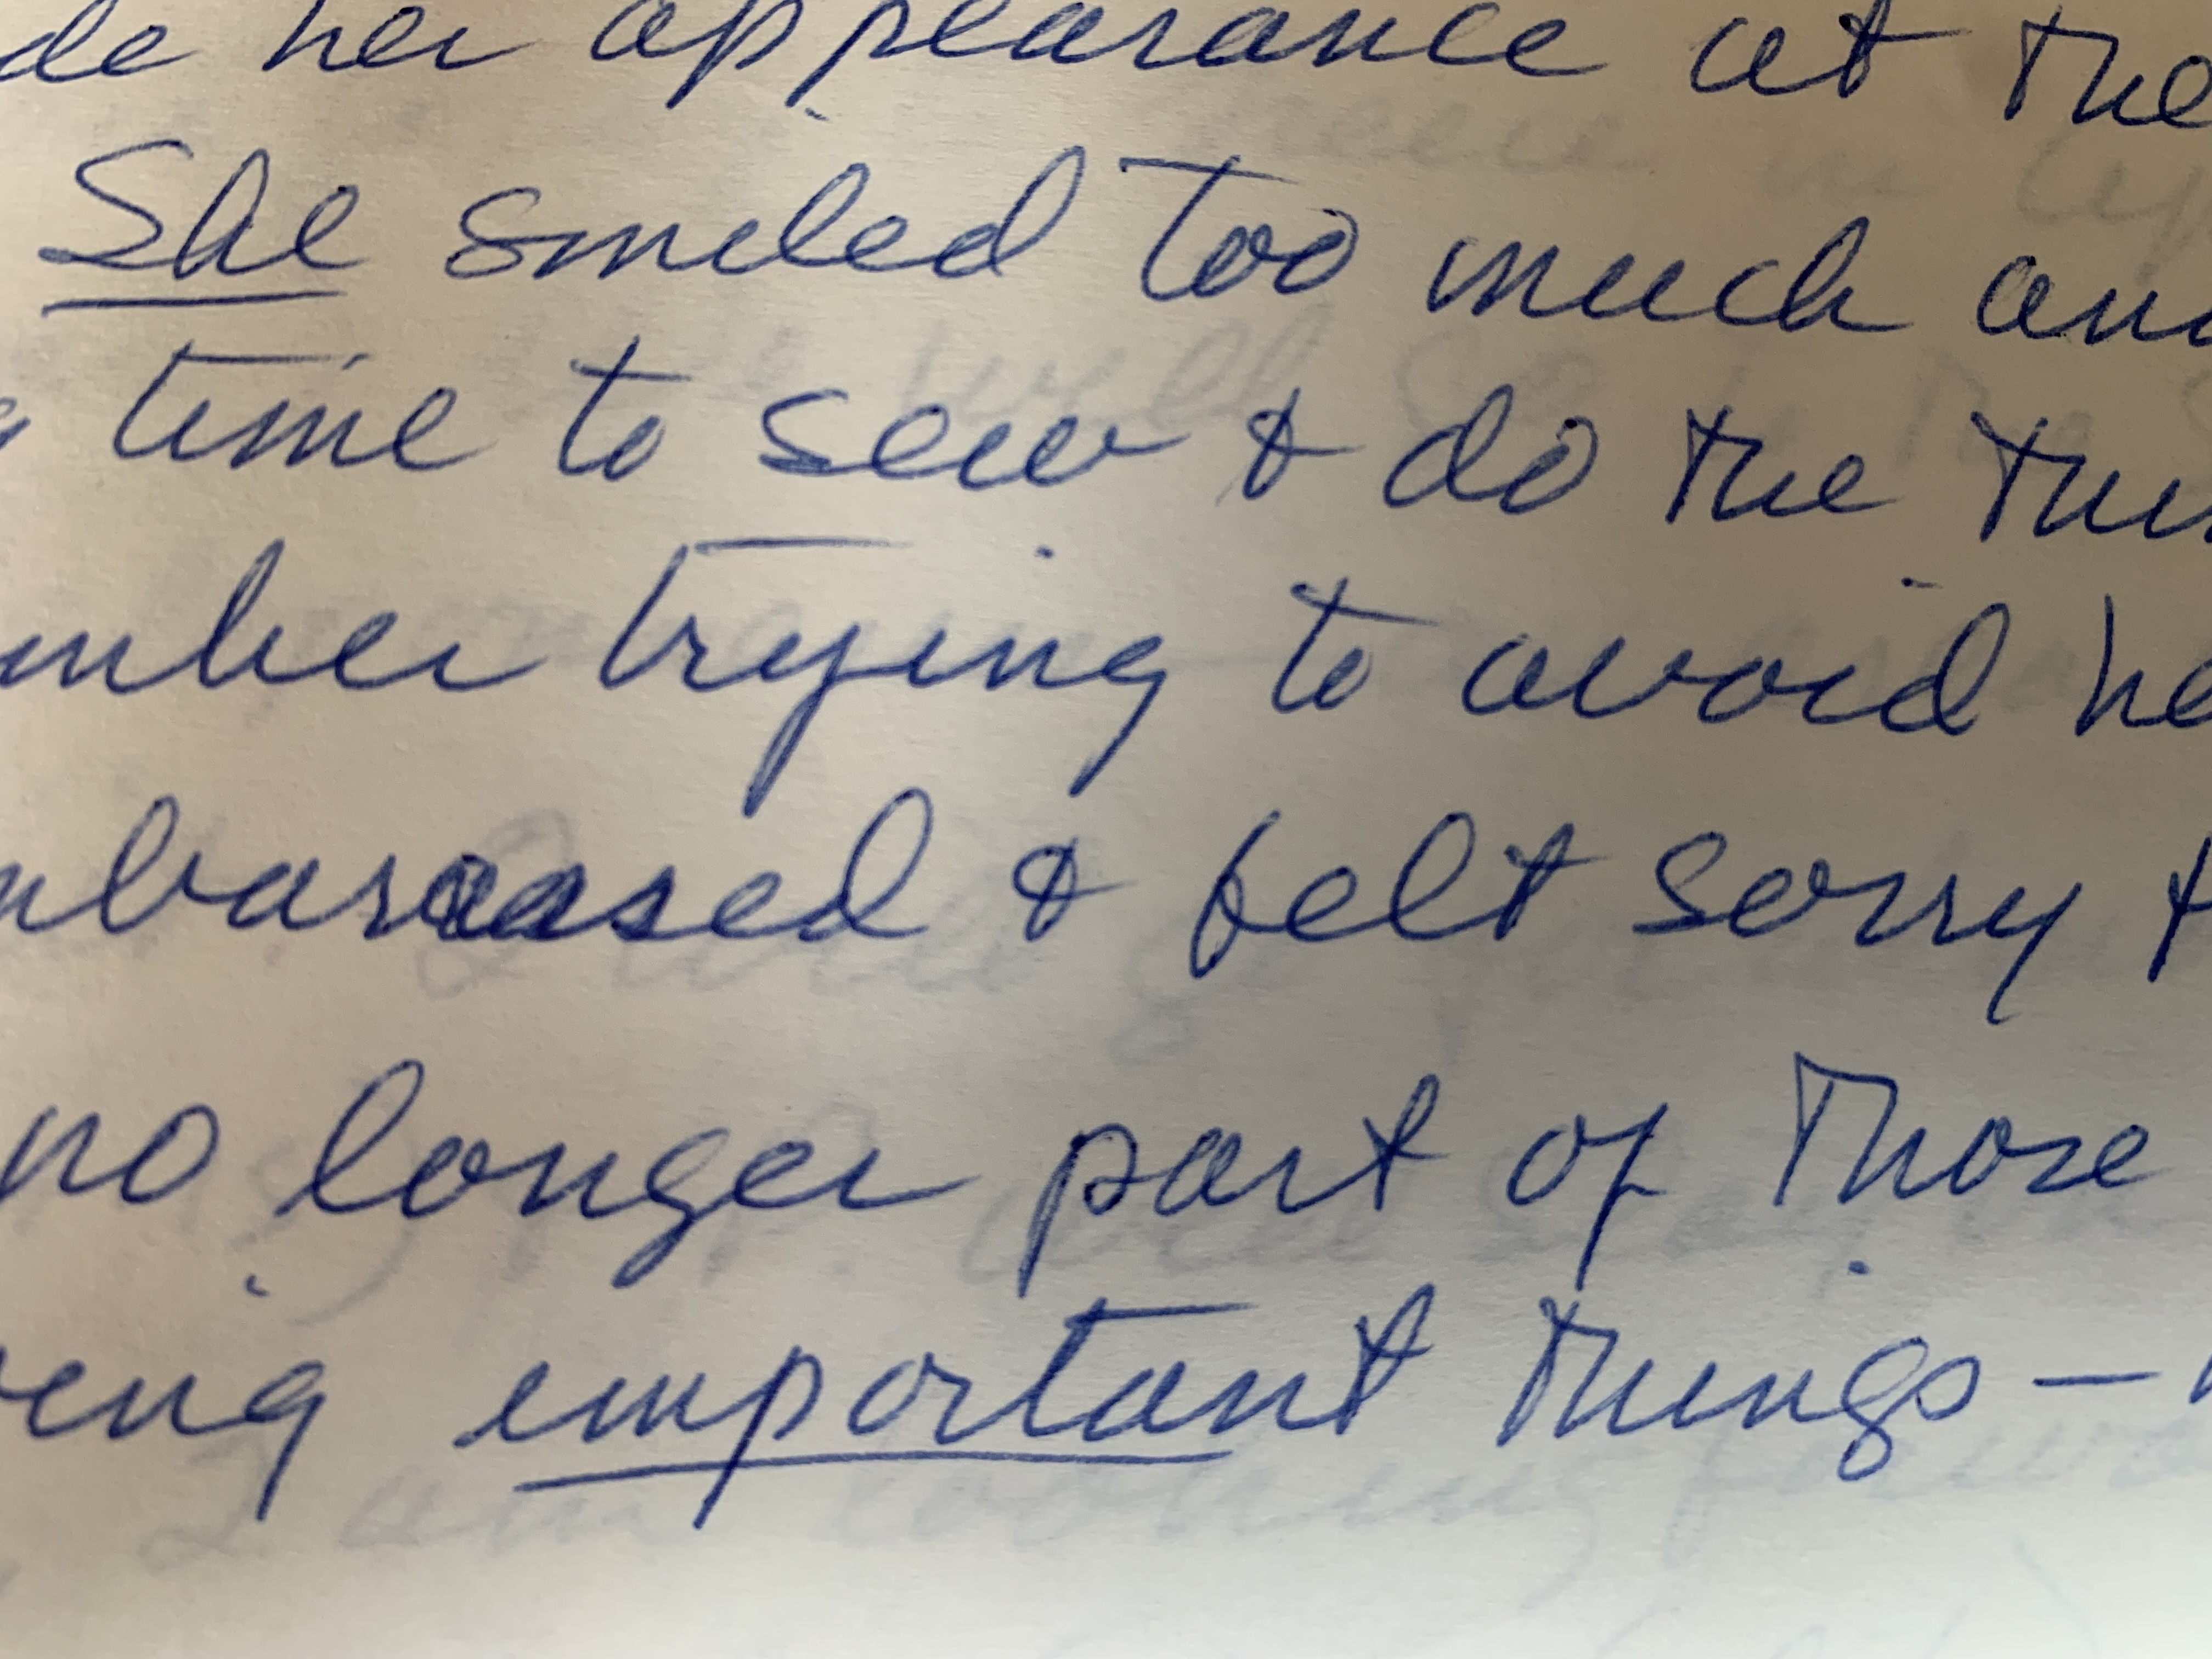 de her appearance at the
She smiled too much an
time to sew & do the thin
mber trying to avoid he
mbarrased & felt sorry t
no longer part of those
ing important things —